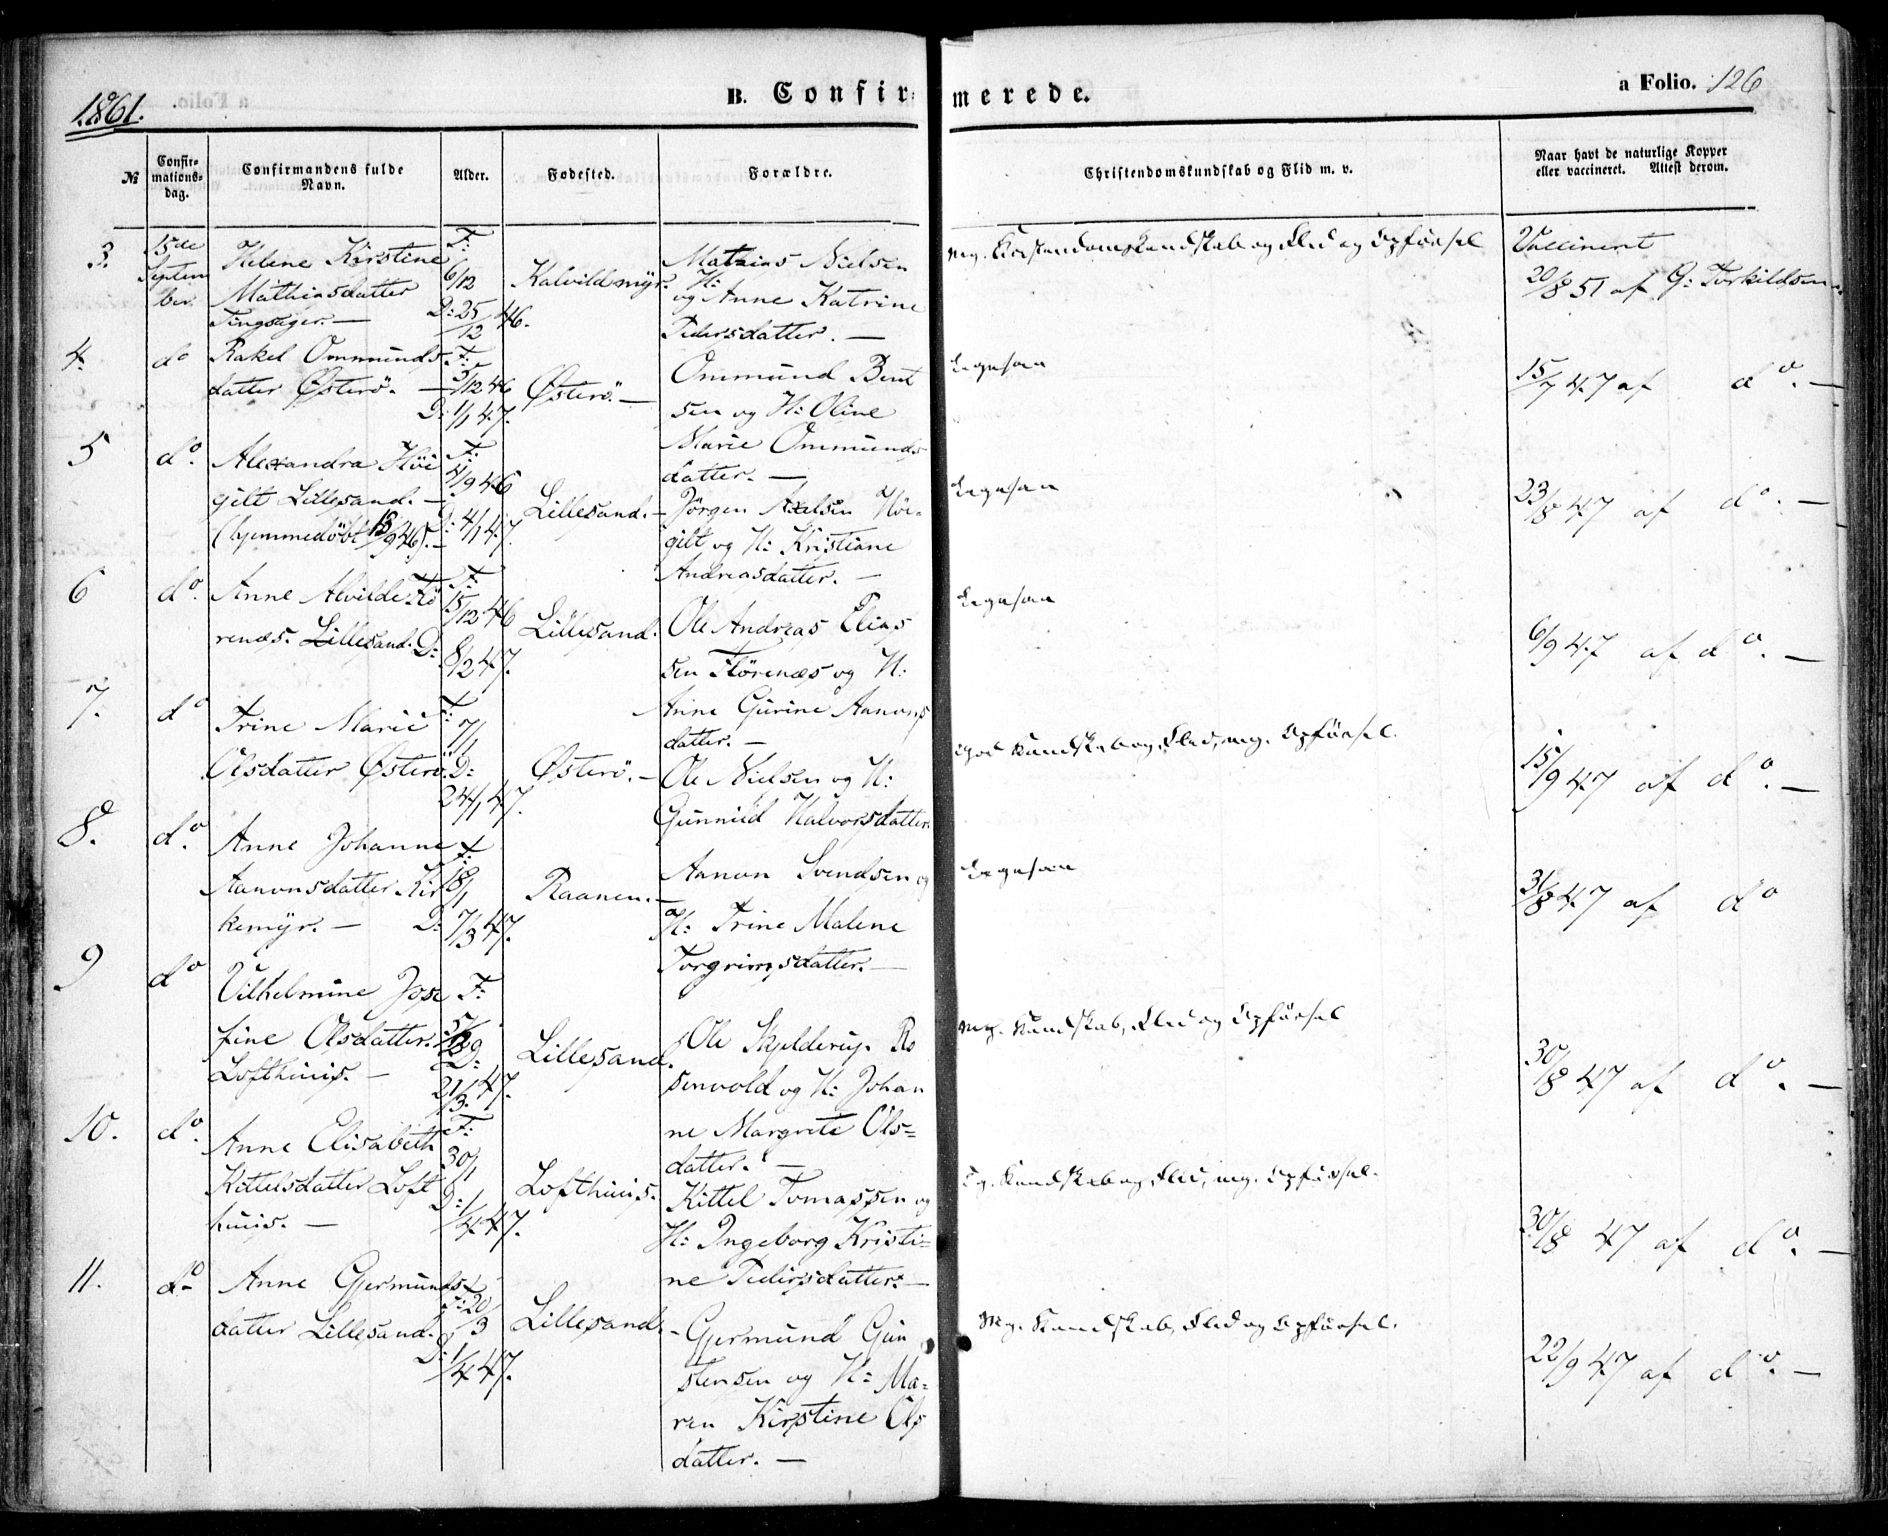 1861.
B. Confir- merede.
a Folio. 126
№
Confir-
mations-
dag.
Confirmandens fulde
Navn.
Alder.
Fødested.
Forældre.
Christendomskundskab og Flid m. v.
Naar havt de naturlige Kopper
eller vaccineret. Attest derom.
3. 15de
Septem
ber.
Helene Kirstine
Mathiasdatter
Tingsager. —
F:
6/12
D: 25/12 46.
Kalvildmyr.
Mathias Nielsen
og H: Anne Katrine
Pedersdatter. —
mg. Kristendomskundskab og Flid og Opførsel
Vaccineret
20/8 51 af G: Torkildsen
4. do
Rakel Ommunds
datter Østerö. —
F:
5/12 46
D: 1/1 47.
Østerö. —
Ommund Bent
sen og H: Oline
Marie Ommunds
datter. —
Ligesaa
15/7 47 af do. —
5 do.
Alexandra Höi
gilt Lillesand. —
(hjemmedöbt 13/9 46). —
F:
4/9 46
D: 4/1 47.
Lillesand. —
Jørgen Axelsen Höi-
gilt og H: Kristiane
Andreasdatter. —
Ligesaa
23/8 47 af do. —
6 do.
Anne Alvilde Flö
renæs. Lillesand.
F:
15/12 46
D: 8/2 47.
Lillesand.
Ole Andreas Elias
sen Flörenæs og H:
Anne Gurine Aanons
datter. —
Ligesaa
6/9 47 af do. —
7. do
Trine Marie
Olsdatter Østerö.
F:
7/1
D:
24/1 47.
Østerö. —
Ole Nielsen og H:
Gunnild Halvorsdatter.
God Kundskab og Flid, mg. Opførsel.
15/9 47 af do. —
8. do.
Anne Johanne
Aanonsdatter Kir
kemyr. —
F:
18/1
D: 7/3 47.
Raanen. —
Aanon Svendsen og
H: Trine Malene
Torgrimsdatter. —
Ligesaa
31/8 47 af do
9 do
Vilhelmine Jose
fine Olsdatter.
Lofthuus. —
F:
D:
21/3 47.
Lillesand.
Ole Skjelderup Ro
senvold og H: Johan
ne Margrete Ols-
datter. —
mg. Kundskab, Flid og Opførsel
30/8 47 af do. —
10. do.
Anne Elisabeth
Kittelsdatter Loft
huus. —
F:
30/1
D: 1/4 47.
Lofthuus.
Kittel Tomassen og
H: Ingeborg Kristi-
ne Pedersdatter. —
Kundskab og Flid, mg. Opførsel.
30/8 47 af do. —
11. do
Anne Gjermunds
datter Lillesand.
F: 20/3
D: 1/4 47.
Lillesand. —
Gjermund Gun
stensen og H: Ma-
ren Kirstine Ols
datter. —
Mg. Kundskab, Flid og Opførsel.
22/9 47 af do. —